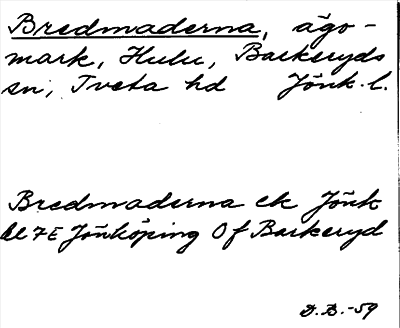 Bredmaderna, ägo-
mark, Hulu, Barkeryds
sn, Tveta hd Jönk. l.
Bredmaderna ek Jönk
bl 7E Jönköping Öf Barkeryd
D.B.-59